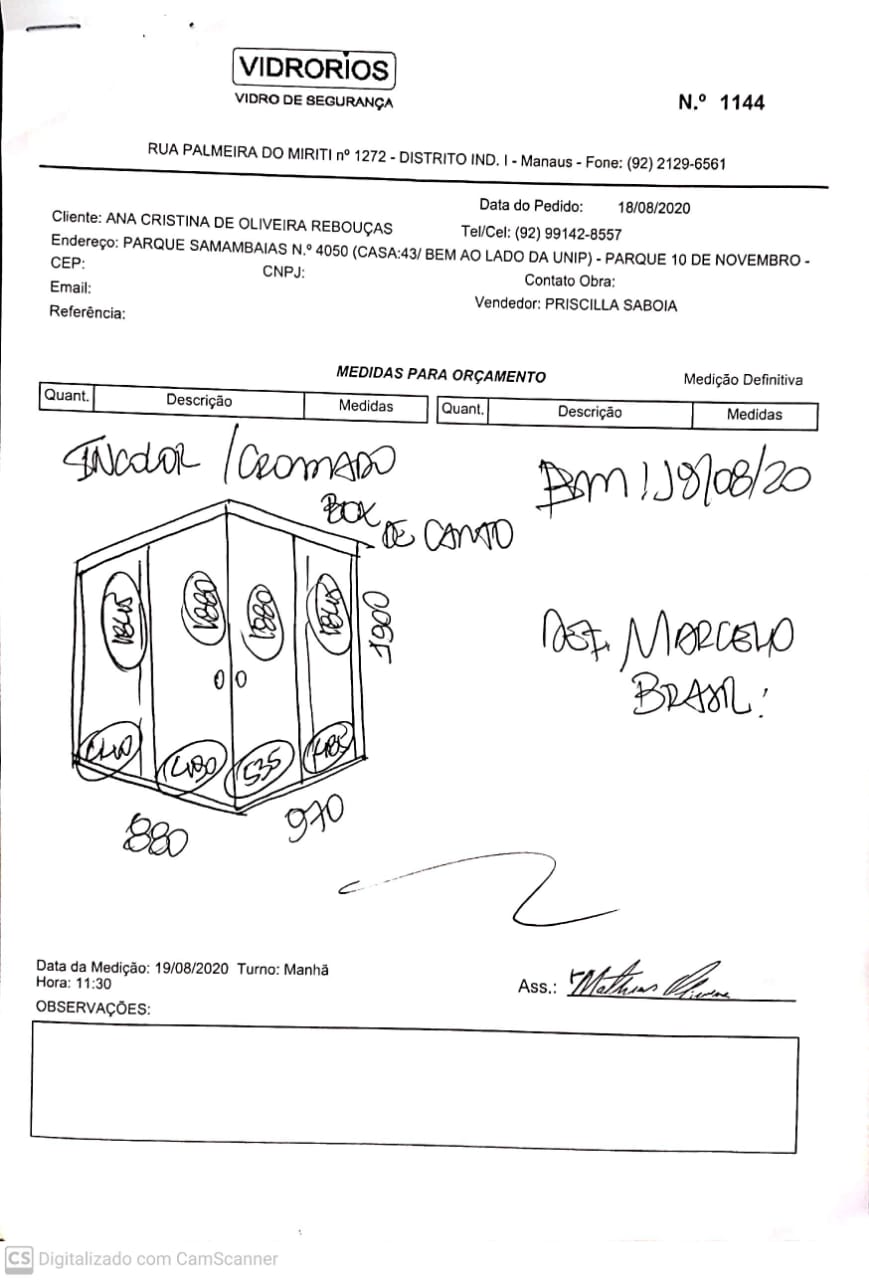 VIDRORIOS
VIDRO DE SEGURANÇA
N.º 1144
RUA PALMEIRA DO MIRITI nº 1272 - DISTRITO IND. I - Manaus - Fone: (92) 2129-6561
Data do Pedido: 18/08/2020
Cliente: ANA CRISTINA DE OLIVEIRA REBOUÇAS Tel/Cel: (92) 99142-8557
Endereço: PARQUE SAMAMBAIAS N.º 4050 (CASA:43/ BEM AO LADO DA UNIP) - PARQUE 10 DE NOVEMBRO -
CEP: CNPJ: Contato Obra:
Email: Vendedor: PRISCILLA SABOIA
Referência:
MEDIDAS PARA ORÇAMENTO Medição Definitiva
Quant. Descrição Medidas Quant. Descrição Medidas
INCOLOR / CROMADO
19/08/20
BOX
DE CANTO
1845 1880 1880 1845
1900
MARCELO
BRASIL!
535
880 970
Data da Medição: 19/08/2020 Turno: Manhã
Hora: 11:30
Ass.: Matheus Oliveira
OBSERVAÇÕES:
CS Digitalizado com CamScanner